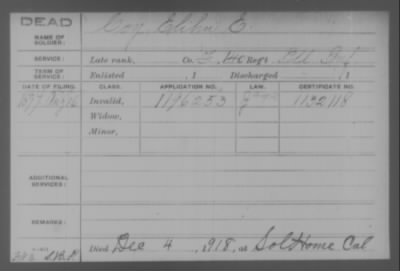 DEAD
NAME OF SOLDIER: Coy, Elihu E.
SERVICE: Late rank, Co. F, 46 Regt Ill. Inf.
TERM OF SERVICE: Enlisted , 1 Discharged , 1
DATE OF FILING. CLASS. APPLICATION NO. LAW. CERTIFICATE NO.
1897 Aug 16 Invalid, 1196253 1132118
Widow,
Minor,
ADDITIONAL SERVICES:
REMARKS:
Died Dec 4, 1918, at Sol Home Cal